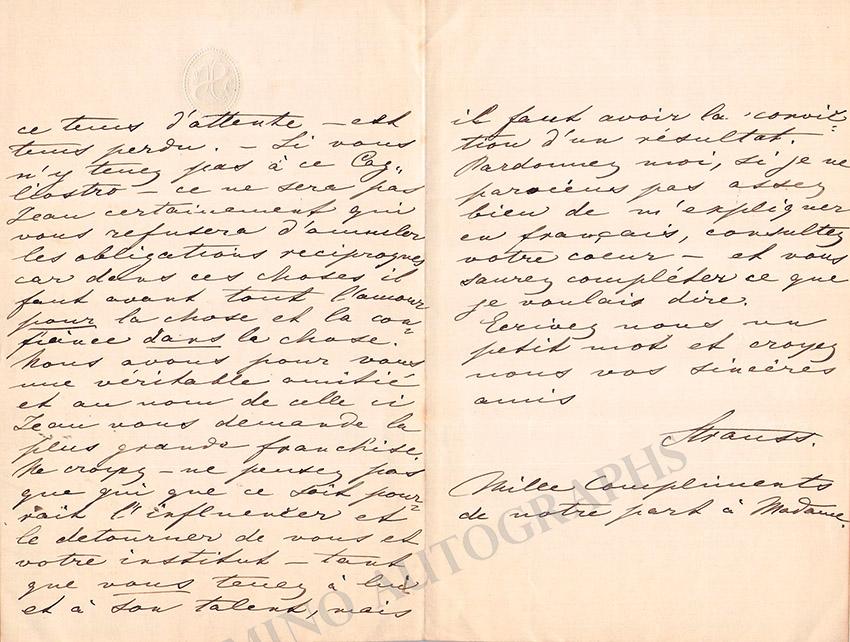 ce tems d'attente – est
tems perdu. – Si vous
n'y tenez pas à ce Cag„
liostro – ce ne sera pas
Jean certainement qui
vous refusera d'annuler
les obligations reciproques
car dans ces choses il
faut avant tout l'amour
pour la chose et la con„
fience dans la chose.
Nous avons pour vous
une véritable amitié
et au nom de celle ci
Jean vous demande la
plus grande franchise.
Ne croyez – ne pensez pas
que qui que ce soit pour„
rait l'influencer et
le detourner de vous et
votre institut – tant
que vous tenez à lui
et à son talent, mais
il faut avoir la convic„
tion d'un résultat.
Pardonnez moi, si je ne
parviens pas assez
bien de m'expliquer
en français, consultez
votre coeur – et vous
saurez compléter ce que
je voulais dire.
Ecrivez nous un
petit mot et croyez
nous vos sincères
amis
Strauss.
Mille Compliments
de notre part à Madame.
MINO AUTOGRAPHS